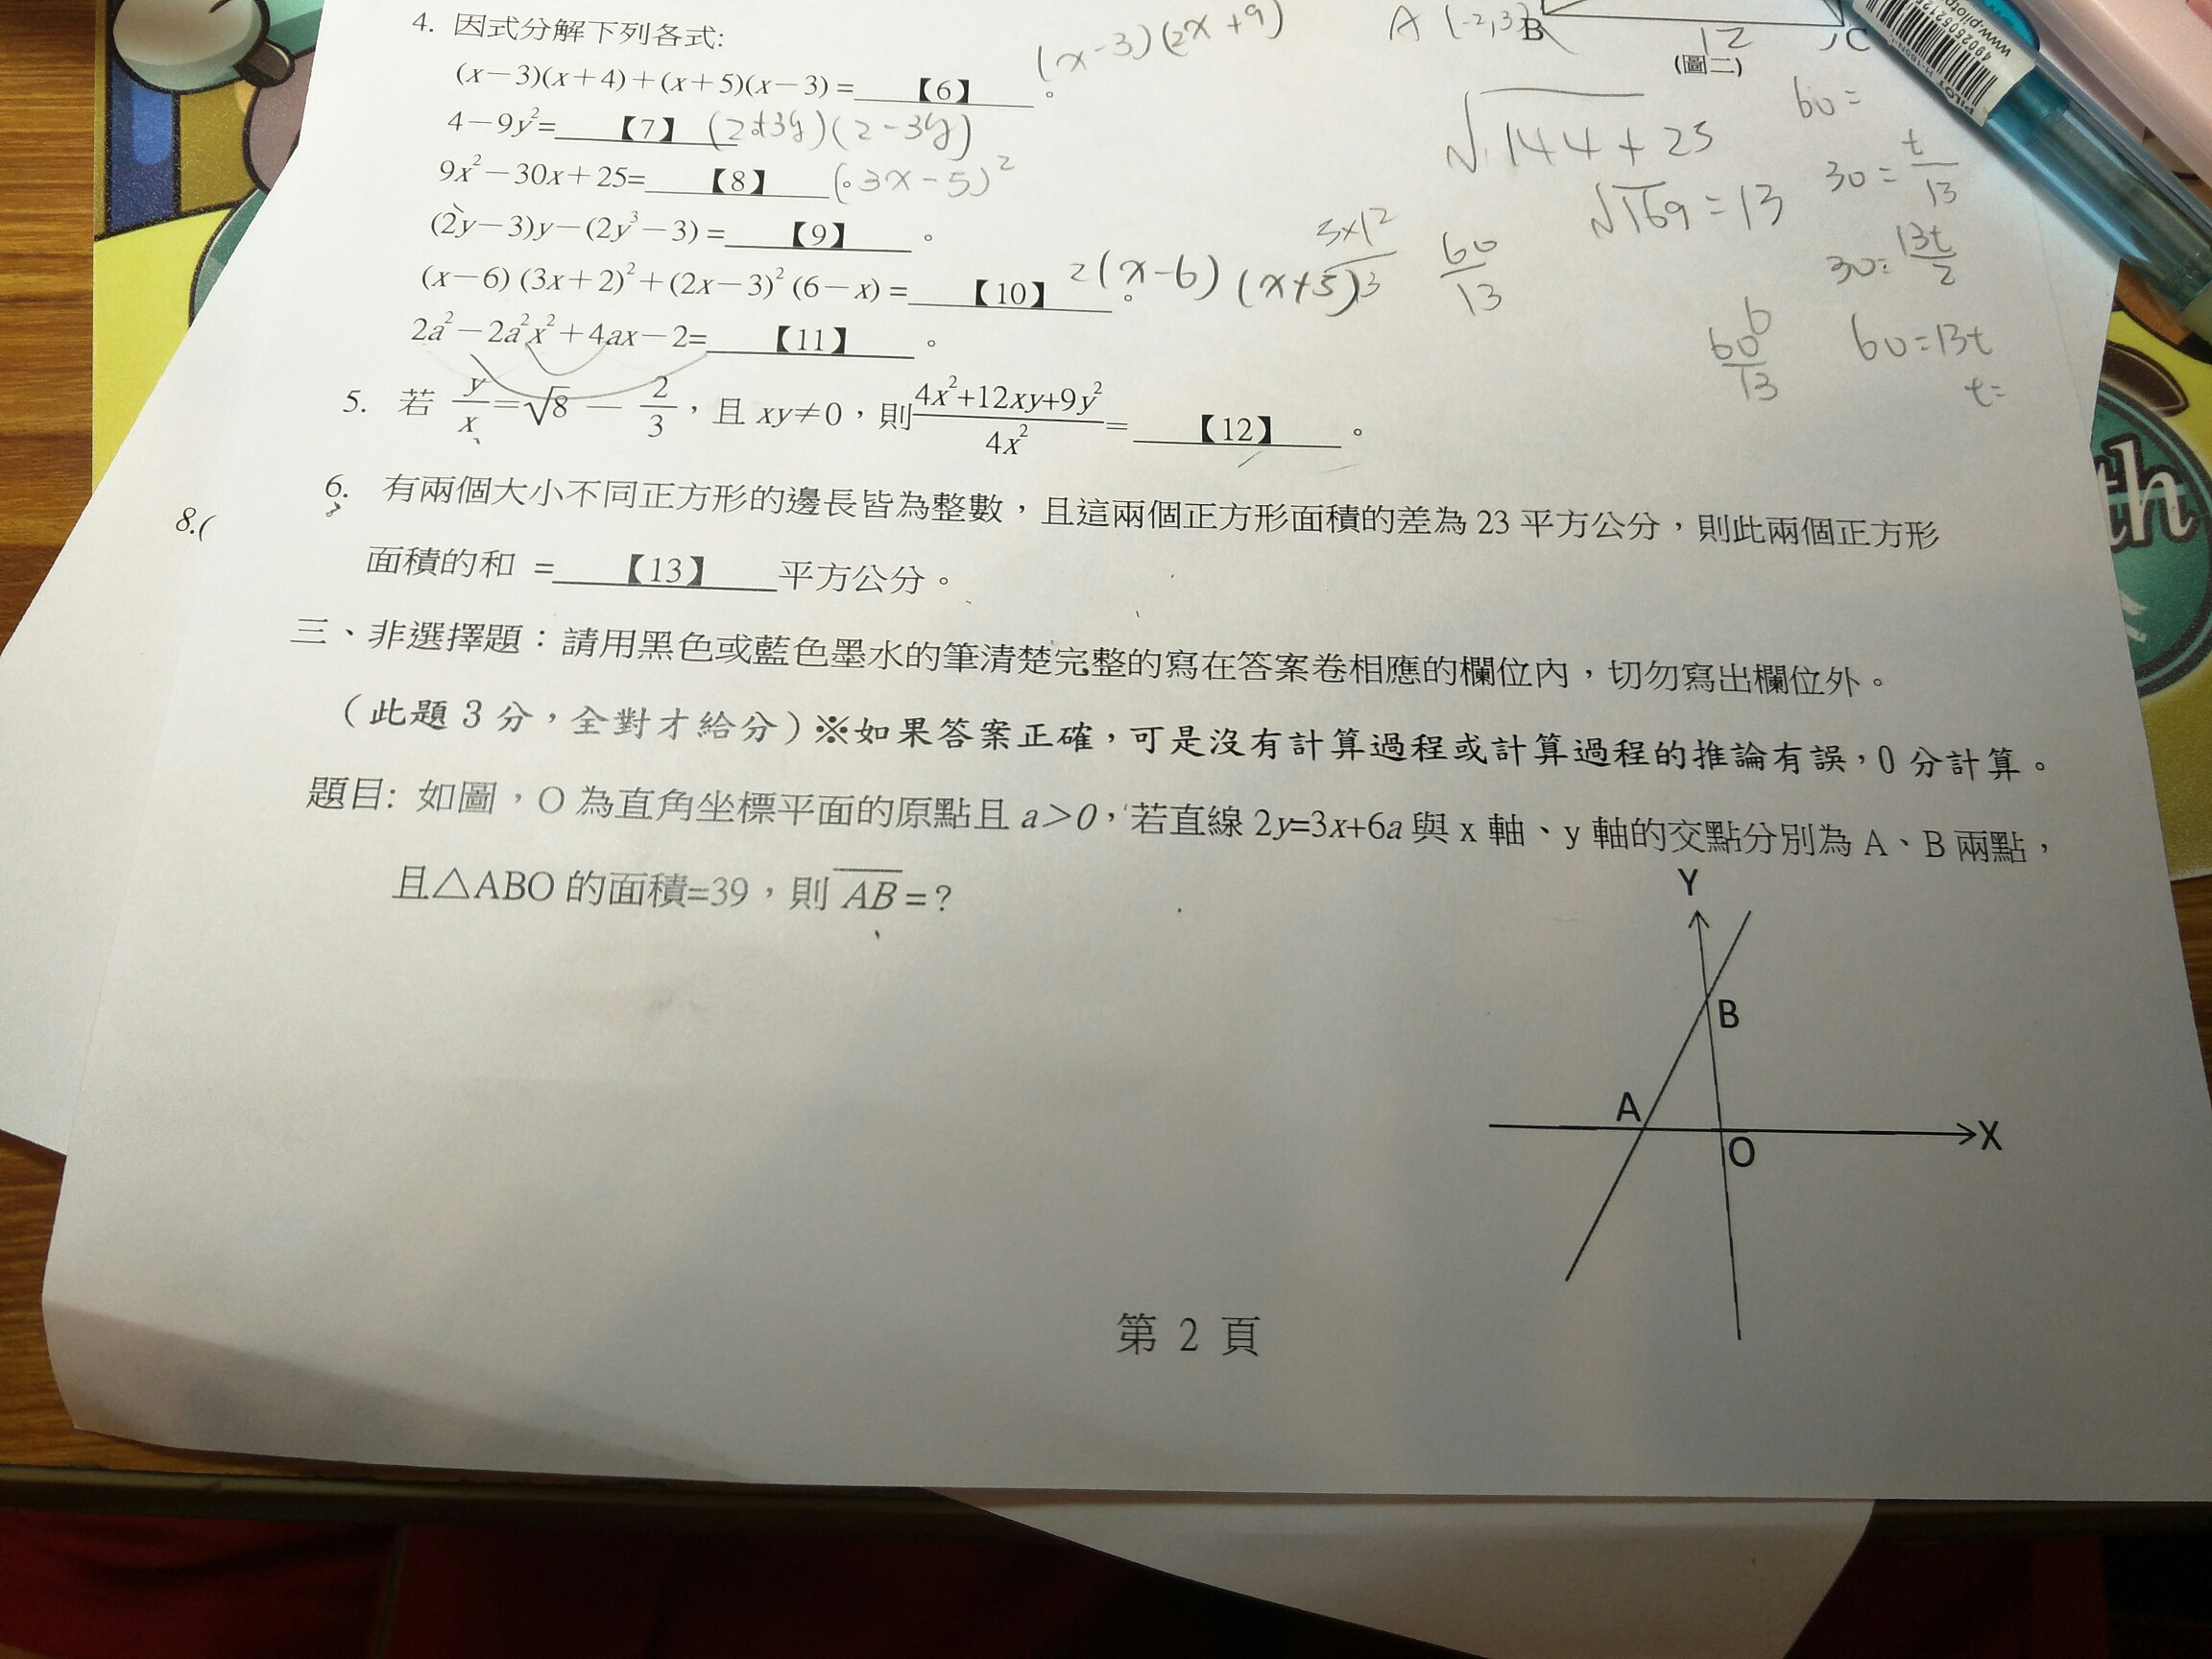 4. 因式分解下列各式:
(x−3)(x+4)+(x+5)(x−3)=【6】。 (x-3)(2x+9)
4−9y²=【7】 (2+3y)(2-3y)
9x²−30x+25=【8】。 (3x-5)²
(2y−3)y−(2y³−3)=【9】。
(x−6)(3x+2)²+(2x−3)²(6−x)=【10】。 2(x-6)(x+5)
2a²−2a²x²+4ax−2=【11】。
5. 若 y/x=√8 − 2/3，且 xy≠0，則 4x²+12xy+9y²/4x² =【12】。
6. 有兩個大小不同正方形的邊長皆為整數，且這兩個正方形面積的差為 23 平方公分，則此兩個正方形
面積的和 =【13】平方公分。
8.(
三、非選擇題：請用黑色或藍色墨水的筆清楚完整的寫在答案卷相應的欄位內，切勿寫出欄位外。
（此題 3 分，全對才給分）※如果答案正確，可是沒有計算過程或計算過程的推論有誤，0 分計算。
題目: 如圖，O 為直角坐標平面的原點且 a＞0，若直線 2y=3x+6a 與 x 軸、y 軸的交點分別為 A、B 兩點，
且△ABO 的面積=39，則 AB=?
Y
B
A
X
O
第 2 頁
A (-2,3)
B
12
C
(圖二)
√144+25
√169=13
5x12/13
60/13
60=
30=t/13
30=13t/2
60=13t
t=
60/13
6
PILOT
th